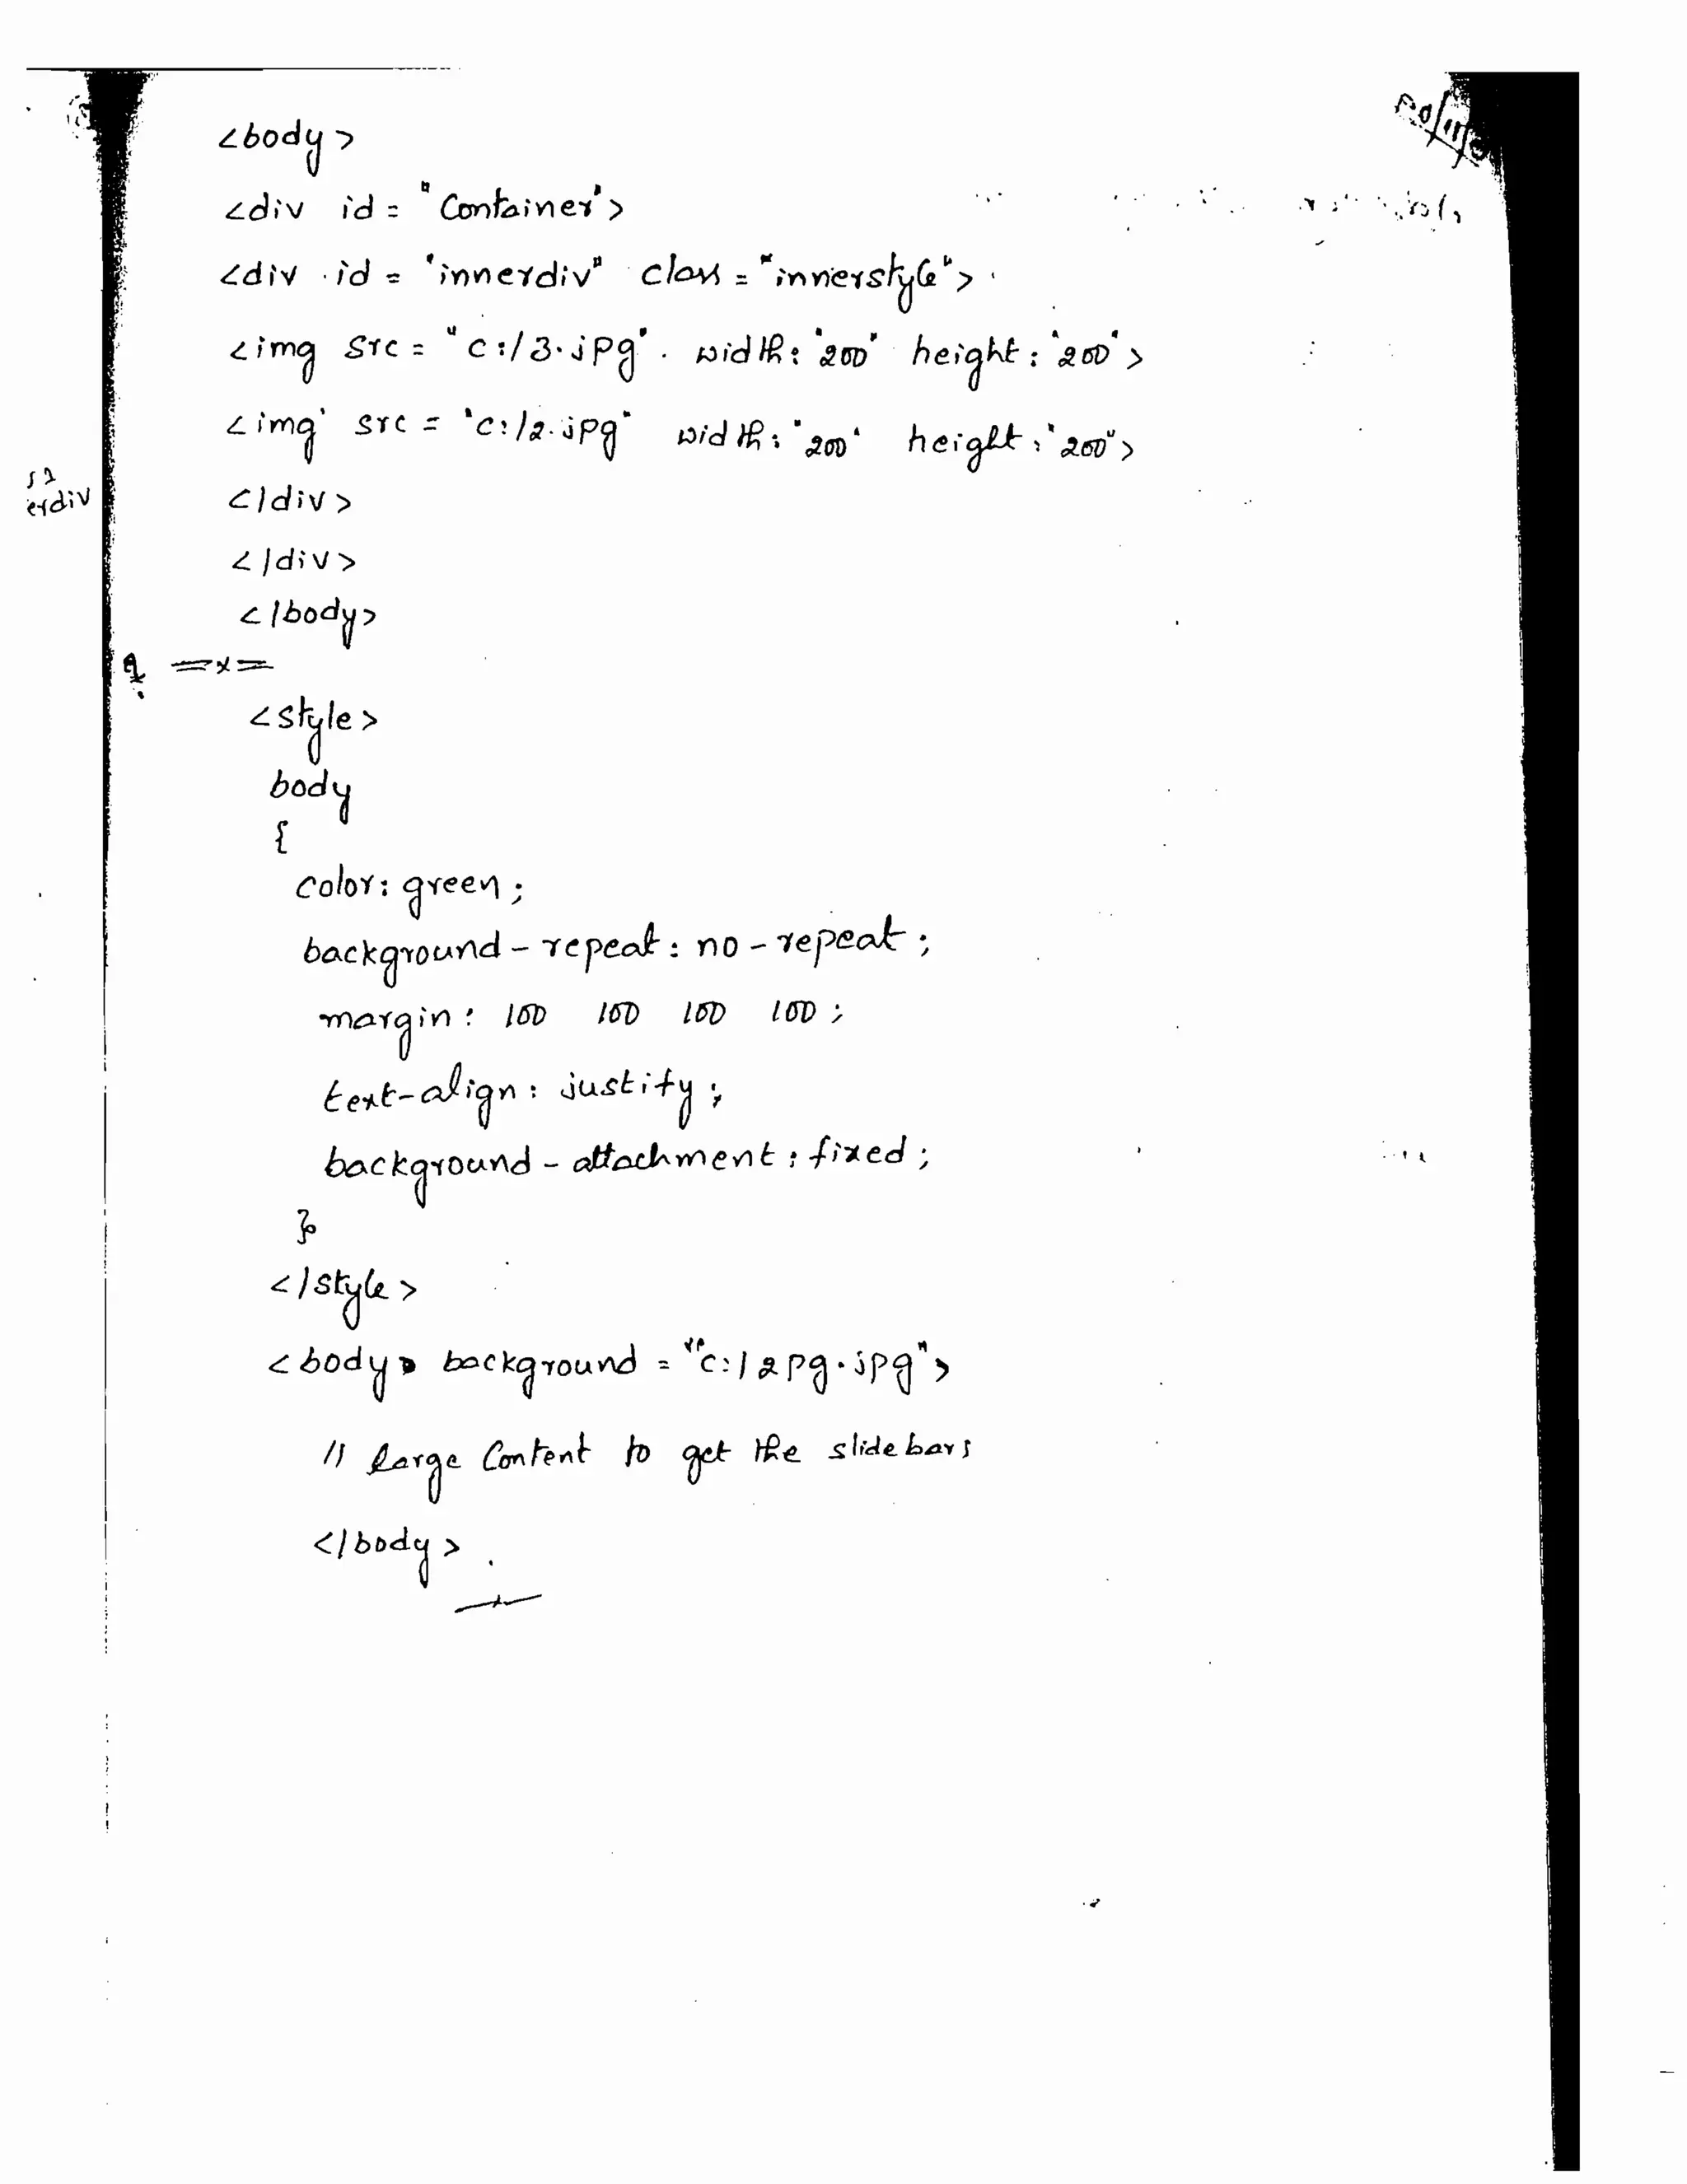 <body>
<div id = "Container">
<div id = "innerdiv" class = "innerstyle">
<img src = "c:/3.jpg" width: "200" height: "200">
<img src = "c:/2.jpg" width: "200" height: "200">
erdiv
</div>
</div>
</body>
=x=
<style>
body
{
color: green;
background-repeat: no-repeat;
margin: 100 100 100 100;
text-align: justify;
background-attachment: fixed;
}
</style>
<body background = "c:/2pg.jpg">
// large Content to get the slidebars
</body>